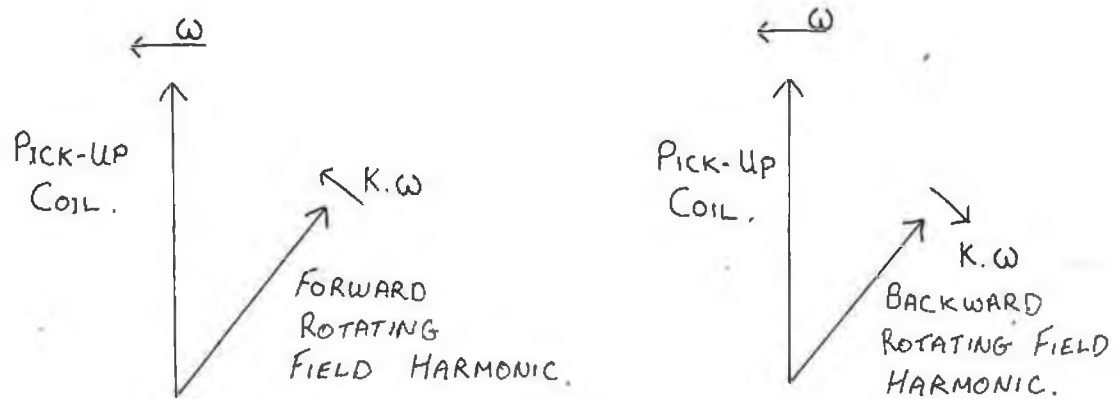 ω
PICK-UP
COIL.
K.ω
FORWARD
ROTATING
FIELD HARMONIC.
ω
PICK-UP
COIL.
K.ω
BACKWARD
ROTATING FIELD
HARMONIC.